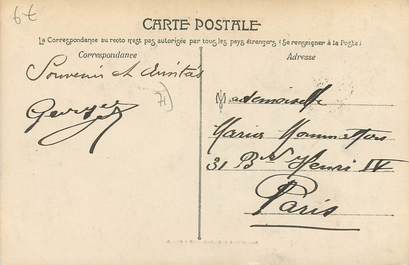 6€
CARTE POSTALE
La Correspondance au recto n'est pas autorisée par tous les pays étrangers (Se renseigner à la Poste)
Correspondance
Adresse
Souvenir et Amitiés
Georges
Mademoiselle
Maria
31 Bd Henri IV
Paris